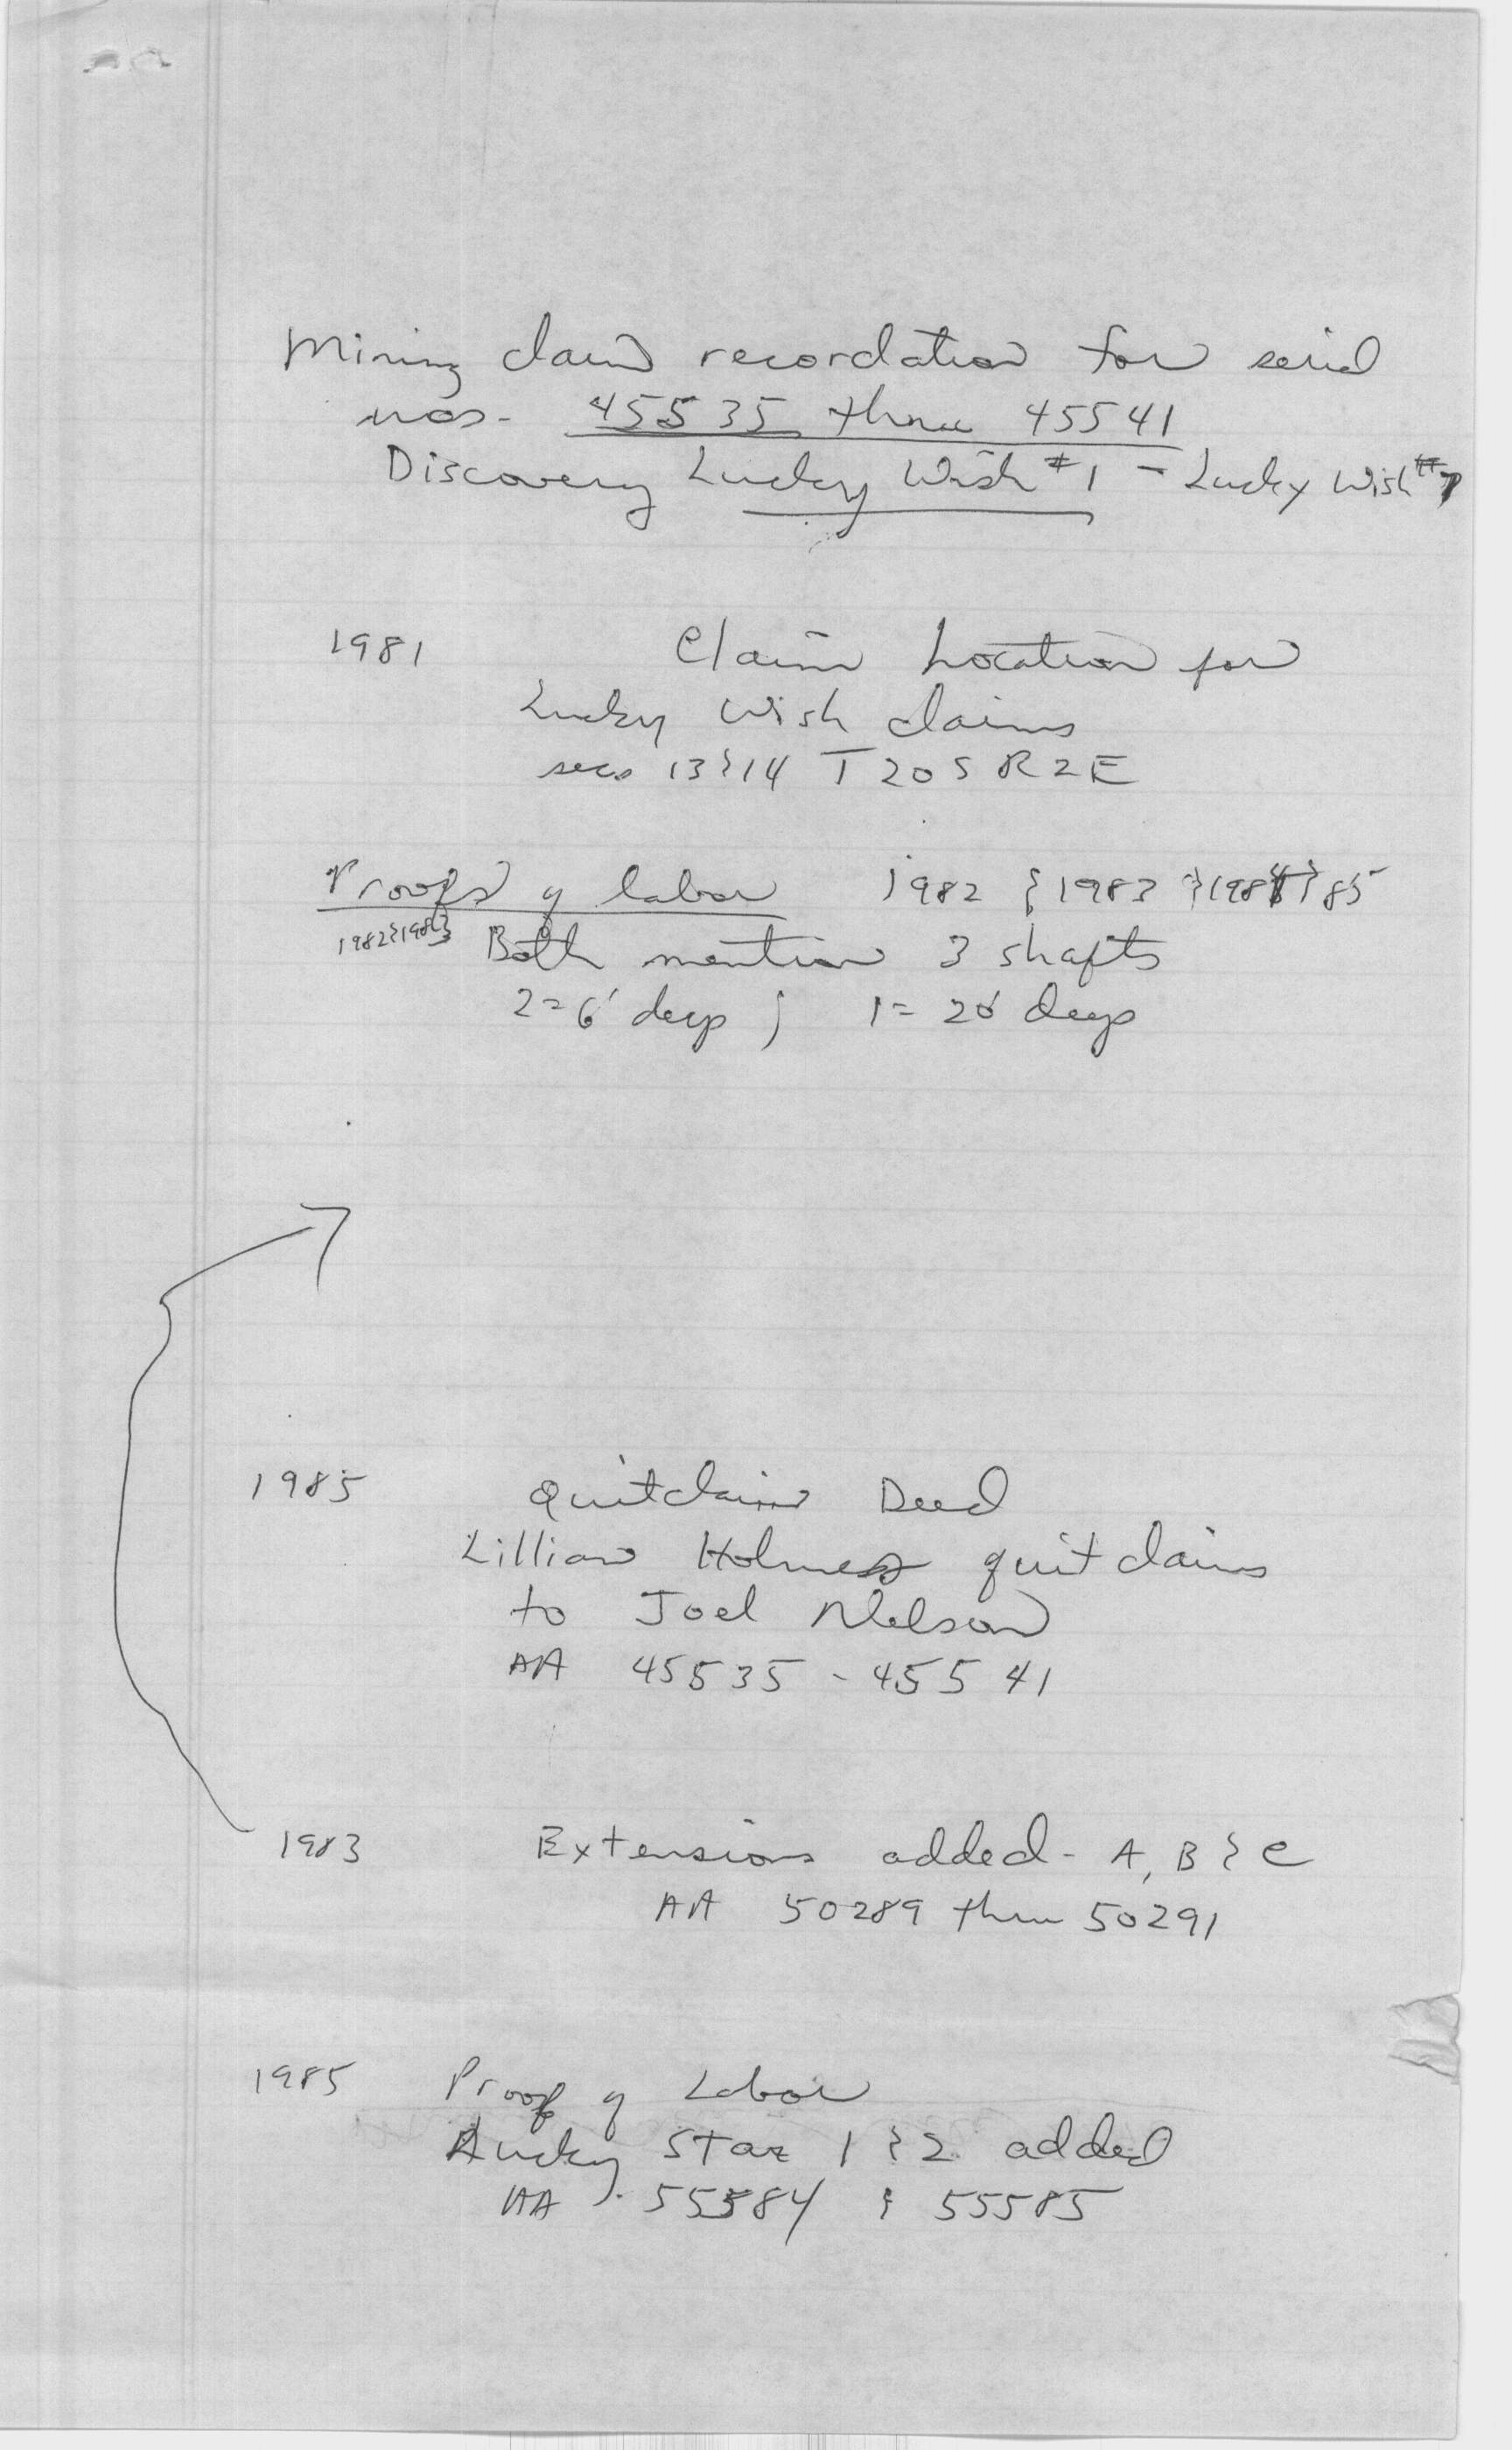 Mining claim recordation for serial
nos. 45535 thru 45541
Discovery Lucky Wish #1 - Lucky Wish #7
1981 Claim Location for
Lucky Wish claims
secs 13 & 14 T20S R2E
Proofs of labor 1982 & 1983 & 1984 & 85
1982 & 1983 Both mention 3 shafts
2 = 6' deep ; 1 = 20' deep
1985 Quitclaim Deed
Lillian Holmes quit claims
to Joel Nelson
AA 45535 - 45541
1983 Extensions added - A, B & C
AA 50289 thru 50291
1985 Proof of Labor
Lucky Star 1 & 2 added
AA 55584 & 55585